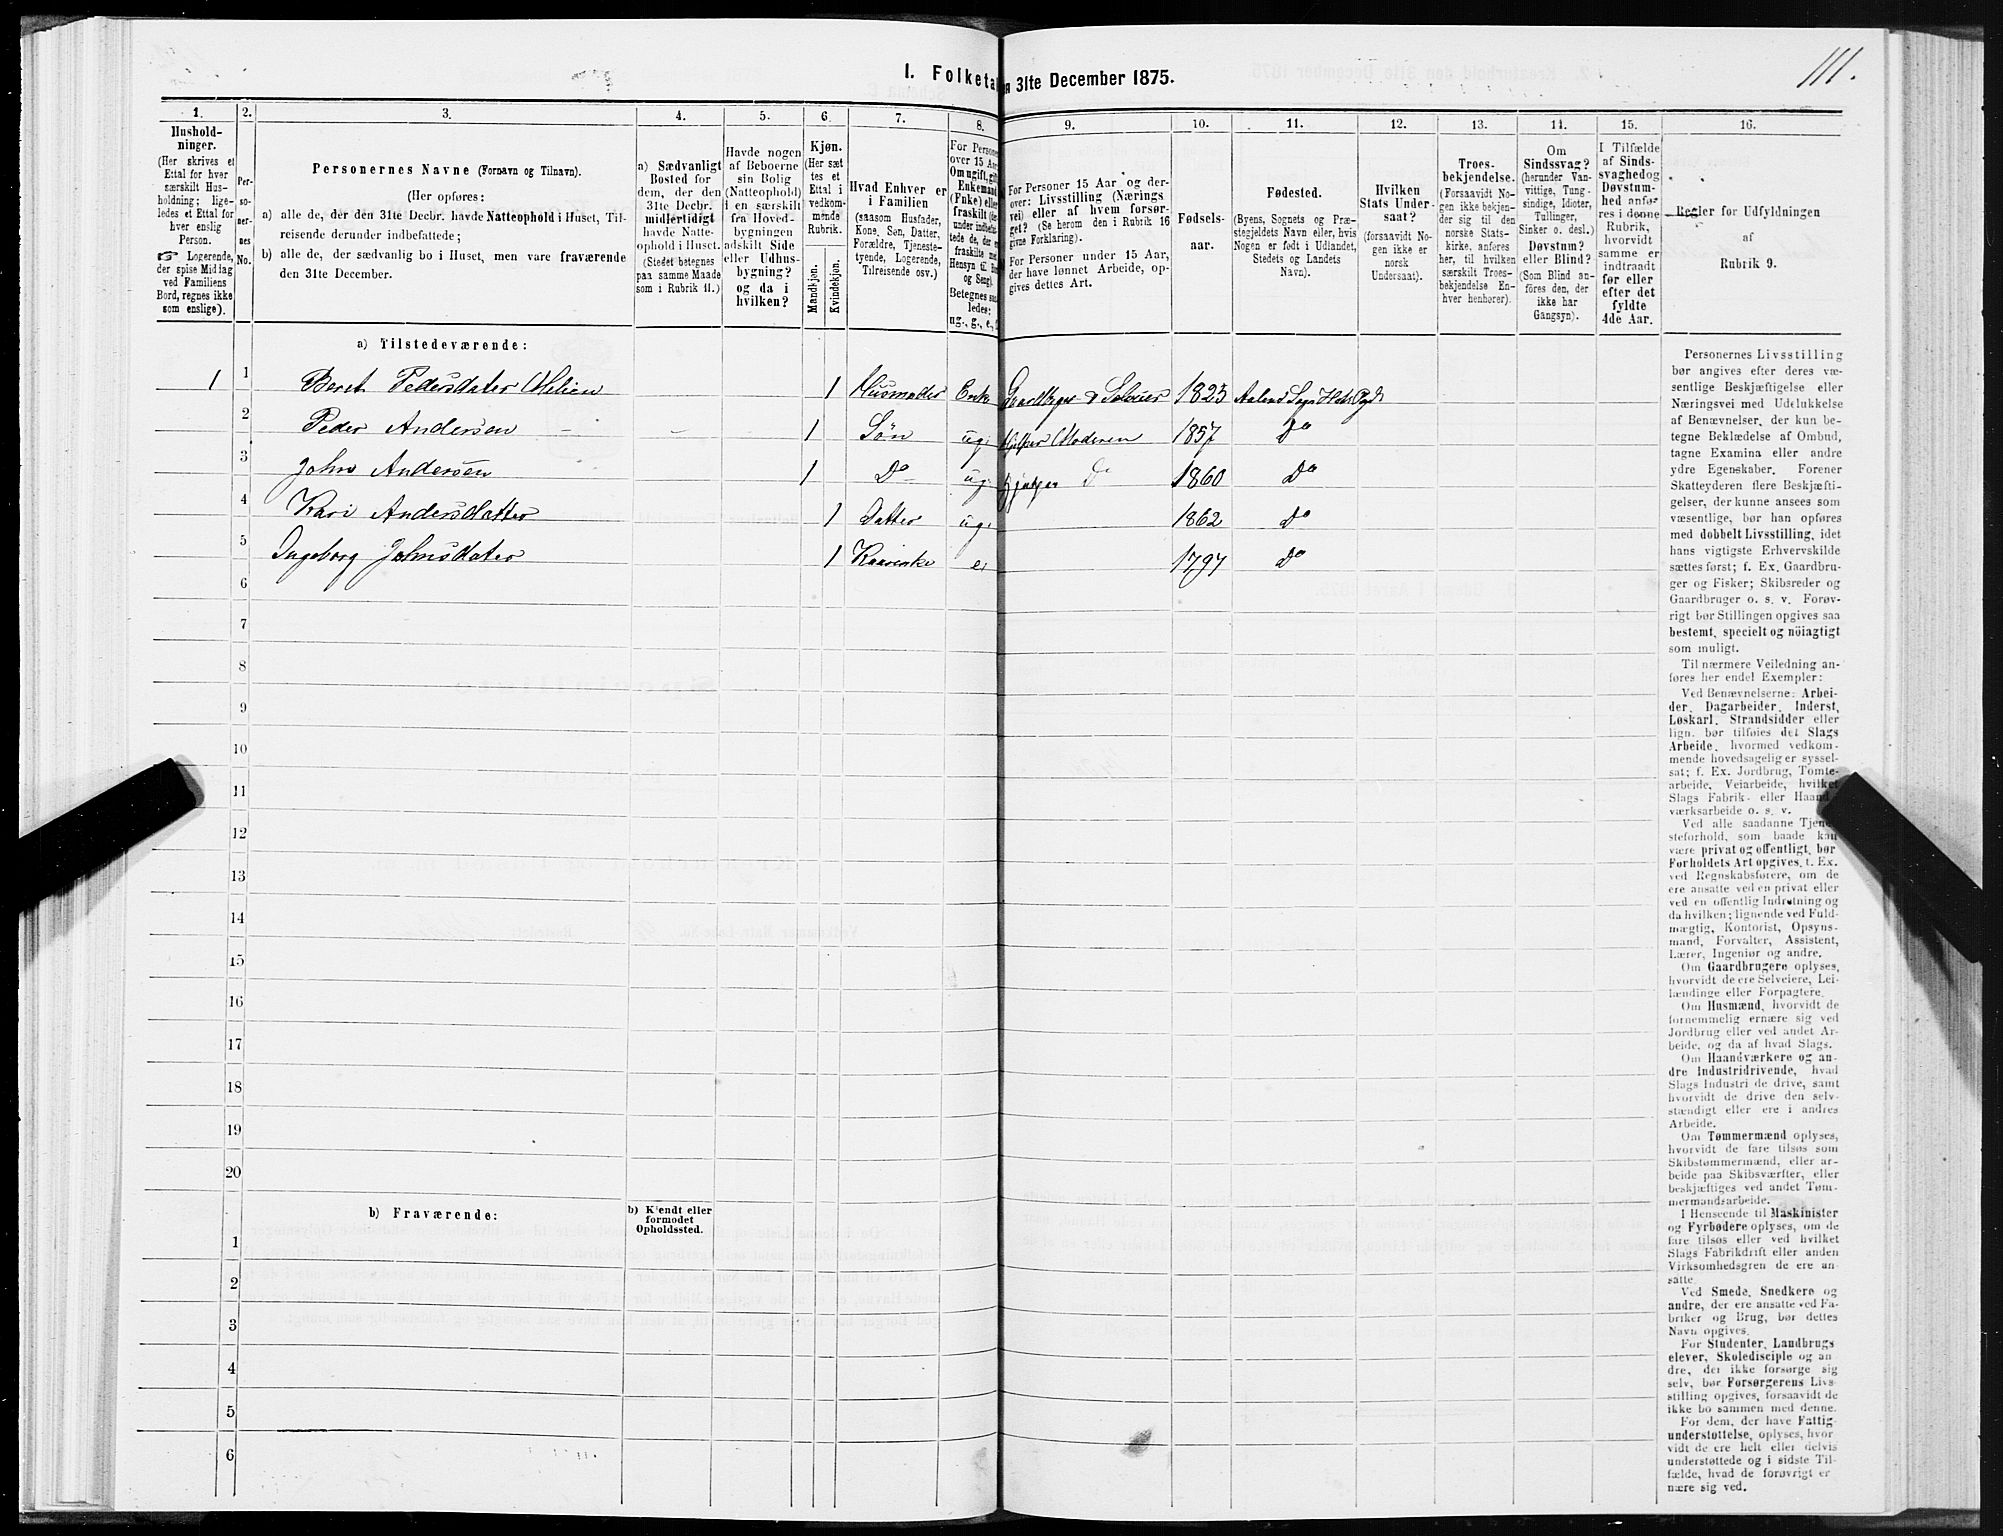 111.
I. Folketal
n 31te December 1875.
1.
2.
3.
4.
5.
6
7.
8.
9.
10.
11.
12.
13.
14.
15.
16.
Hushold-
ninger.
(Her skrives et
Ettal for hver
særskilt Hus-
holdning; lige-
ledes et Ettal for
hver enslig
Person.
☞ Logerende,
der spise Middag
ved Familiens
Bord, regnes ikke
som enslige).
Per-
so-
ner-
nes
No.
Personernes Navne (Fornavn og Tilnavn).
(Her opføres:
a) alle de, der den 31te Decbr. havde Natteophold i Huset, Til-
reisende derunder indbefattede;
b) alle de, der sædvanlig bo i Huset, men vare fraværende
den 31te December.
a) Sædvanligt
Bosted for
dem, der den
31te Decbr.
midlertidigt
havde Natte-
ophold i Huset.
(Stedet betegnes
paa samme Maade
som i Rubrik 11.)
Havde nogen
af Beboerne
sin Bolig
(Natteophold)
i en særskilt
fra Hoved-
bygningen
adskilt Side
eller Udhus-
bygning?
og da i
hvilken?
Kjøn.
(Her sæt
tes et
Ettal i
vedkom-
mende
Rubrik.
Mandkjøn.
Kvindekjøn.
Hvad Enhver er
i Familien
(saasom Husfader,
Kone, Søn, Datter,
Forældre, Tjeneste-
tyende, Logerende,
Tilreisende osv.)
For Persone
over 15 Aar
Om ugift, gift
Enkemand
(Enke) eller
fraskilt
Betegnes saa
ledes:
ug., g., e.,
For Personer 15 Aar og der-
over: Livsstilling (Nærings
vei) eller af hvem forsør-
get? (Se herom den i Rubrik 16
givne Forklaring).
For Personer under 15 Aar,
der have lønnet Arbeide, op-
gives dettes Art.
Fødsels-
aar.
Fødested.
(Byens, Sognets og Præ-
stegjeldets Navn eller, hvis
Nogen er født i Udlandet,
Stedets og Landets
Navn).
Hvilken
Stats Under-
saat?
(forsaavidt No-
gen ikke er
norsk
Undersaat).
Troes-
bekjendelse.
(Forsaavidt No-
gen ikke bekjen-
der sig til den
norske Stats-
kirke, anføres
her, til hvilken
særskilt Troes-
bekjendelse En-
hver henhører).
Om
Sindssvag?
(herunder Van-
vittige, Tung-
sindige, Idioter,
Tullinger,
Sinker o. desl.)
Døvstum?
eller Blind?
(Som Blind an-
føres den, der
ikke har
Gangsyn).
I Tilfælde
af Sinds-
svaghed og
Døvstum-
hed anfø-
res i denne
Rubrik,
hvorvidt
samme er
indtraadt
før eller
efter det
fyldte
4de Aar.
Regler for Udfyldningen
af
Rubrik 9.
a) Tilstedeværende:
1 1 Beret Pedersdater Melien 1 Husmoder Enke Gaardbruger & Selveier 1825 Aalens Sogn Holt Pgd
2 Peder Andersen 1 Søn ug. Hjelper Moderen 1857 Do
3 John Andersen 1 Do ug. Hjelper Do 1860 Do
4 Kari Andersdatter 1 Datter ug. 1862 Do
5 Ingeborg Johnsdater 1 Kaarenke e. 1797 Do
6
7
8
9
10
11
12
13
14
15
16
17
18
19
20
b) Fraværende:
b) Kjendt eller
formodet
Opholdssted.
1
2
3
4
5
6
Personernes Livsstilling
bør angives efter deres væ-
sentlige Beskjæftigelse eller
Næringsvei med Udelukkelse
af Benævnelser, der kun be-
tegne Beklædelse af Ombud,
tagne Examina eller andre
ydre Egenskaber. Forener
Skatteyderen flere Beskjæfti-
gelser, der kunne ansees som
væsentlige, bør han opføres
med dobbelt Livsstilling, idet
hans vigtigste Erhvervskilde
sættes først; f. Ex. Gaardbru-
ger og Fisker; Skibsreder og
Gaardbruger o. s. v. Forøv-
rigt bør Stillingen opgives saa
bestemt, specielt og nöiagtigt
som muligt.
Til nærmere Veiledning an-
føres her endel Exempler:
Ved Benævnelserne: Arbei-
der, Dagarbeider, Inderst,
Løskarl, Strandsidder eller
lign. bør tilføies det Slags
Arbeide, hvormed vedkom-
mende hovedsagelig er syssel-
sat; f. Ex. Jordbrug, Tomte-
arbeide, Veiarbeide, hvilket
Slags Fabrik- eller Haand-
værksarbeide o. s. v.
Ved alle saadanne Tjene-
steforhold, som baade kan
være privat og offentligt, bør
Forholdets Art opgives, t. Ex.
ved Regnskabsførere, om de
ere ansatte ved en privat eller
ved en offentlig Indretning og
da hvilken; lignende ved Fuld-
mægtig, Kontorist, Opsyns-
mand, Forvalter, Assistent,
Lærer, Ingeniør og andre.
Om Gaardbrugere oplyses,
hvorvidt de ere Selveiere, Lei-
lændinge eller Forpagtere.
Om Husmænd, hvorvidt de
fornemmelig ernære sig ved
Jordbrug eller ved andet Ar-
beide, og da af hvad Slags.
Om Haandværkere og an-
dre Industridrivende, hvad
Slags Industri de drive, samt
hvorvidt de drive den selv-
stændigt eller ere i andres
Arbeide.
Om Tømmermænd oplyses,
hvorvidt de fare tilsøs som
Skibstømmermænd, eller ar-
beide paa Skibsværfter, eller
beskjæftiges ved andet Tøm-
mermandsarbeide.
I Henseende til Maskinister
og Fyrbødere oplyses, om de
fare tilsøs eller ved hvilket
Slags Fabrikdrift eller anden
Virksomhedsgren de ere an-
satte.
Ved Smede, Snedkere og
andre, der ere ansatte ved Fa-
briker og Brug, bør dettes
Navn opgives.
For Studenter, Landbrugs
elever, Skoledisciple og an
dre, der ikke forsørge sig
selv, bør Forsørgerens Livs-
stilling opgives, forsaavidt de
ikke bo sammen med denne.
For dem, der have Fattig-
understøttelse, oplyses, hvor
vidt de ere helt eller delvis
understøttede og i sidste Til-
fælde, hvad de forøvrigt er
nære sig ved.